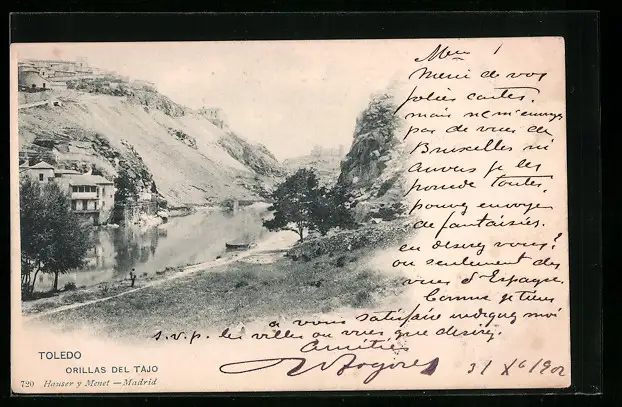 merci de vos
jolies cartes.
mais ne m'envoyez
pas de vues de
Bruxelles ni
Anvers je les
possède toutes.
envoyez
de fantaisies.
en désirez vous?
ou seulement des
vues d'Espagne
Comme je tiens
à vous satisfaire indiquez moi
s.v.p. les villes ou vues que desirez.
Amitiés
31 X 1902
TOLEDO
ORILLAS DEL TAJO
720 Hauser y Menet - Madrid